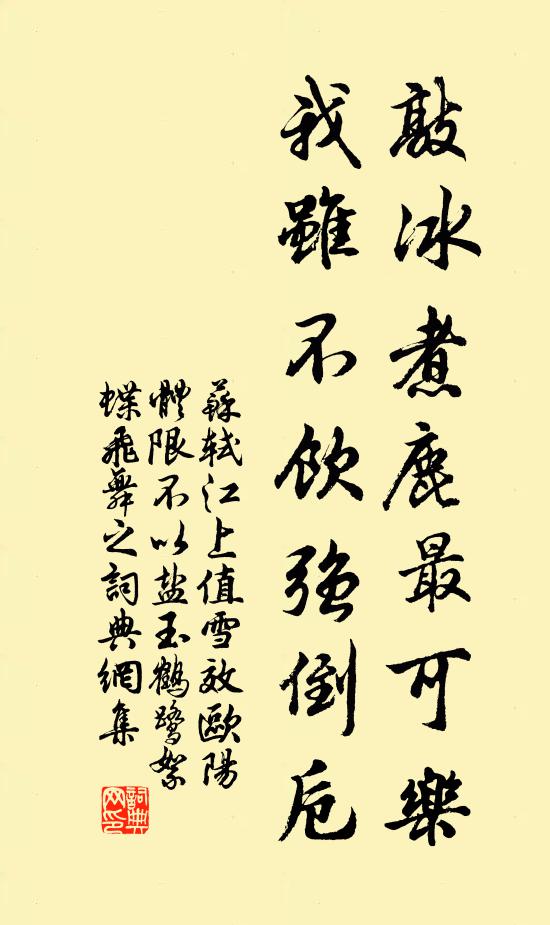 敲冰煮鹿最可樂
我雖不飲強倒卮
蘇軾江上值雪效歐陽
體限不以盐玉鶴鷺絮
蝶飛舞之詞典網集
詞典
网印